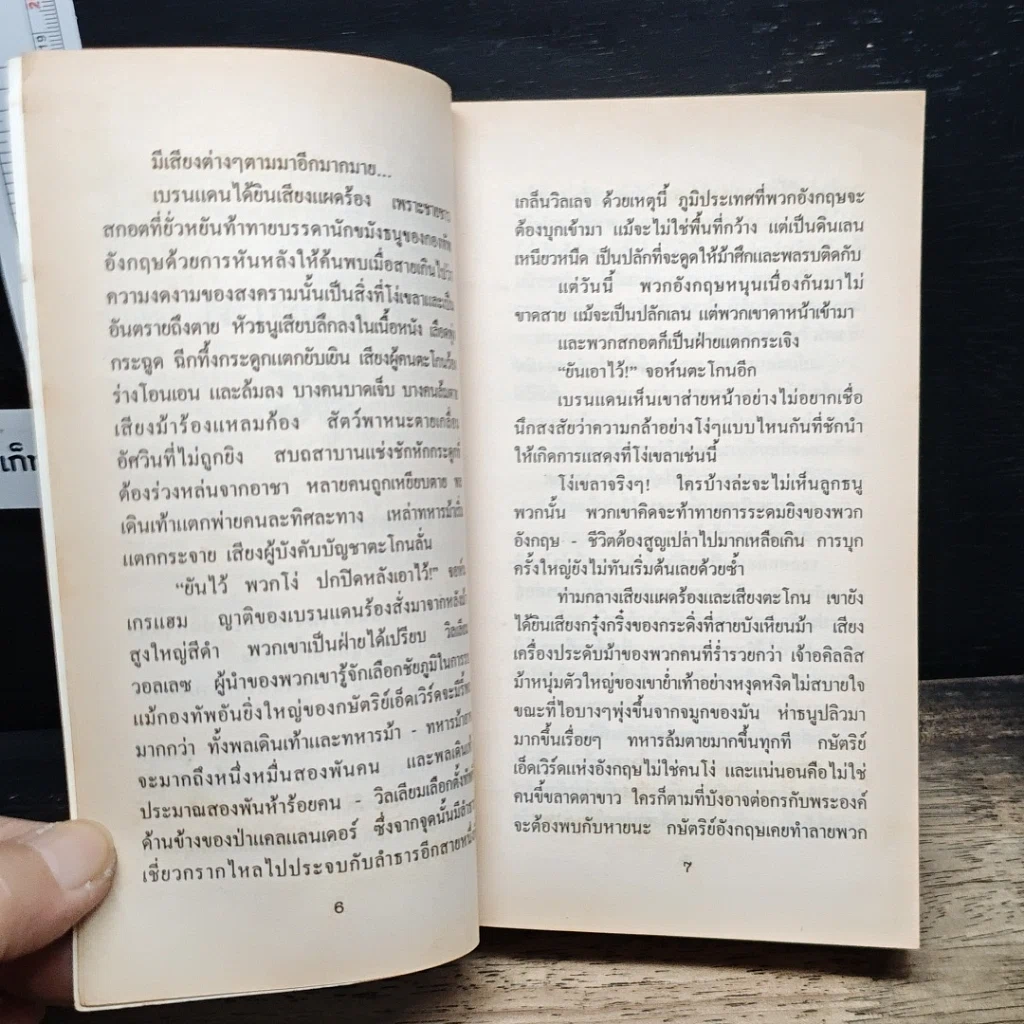 มีเสียงต่างๆตามมาอีกมากมาย...
เบรนแดนได้ยินเสียงแผดร้อง เพราะชายชาว
สกอตที่ยั่วหยันท้าทายบรรดานักขมังธนูของกองทัพ
อังกฤษด้วยการหันหลังให้ค้นพบเมื่อสายเกินไปว่า
ความงดงามของสงครามนั้นเป็นสิ่งที่โง่เขลาและเป็น
อันตรายถึงตาย หัวธนูเสียบลึกลงในเนื้อหนัง เลือดพุ่ง
กระฉูด ฉีกทึ้งกระดูกแตกยับเยิน เสียงผู้คนตะโกน
ร่างโอนเอน และล้มลง บางคนบาดเจ็บ บางคนล้มตาย
เสียงม้าร้องแหลมก้อง สัตว์พาหนะตายเกลื่อน
อัศวินที่ไม่ถูกยิง สบถสาบานแช่งชักหักกระดูกที่
ต้องร่วงหล่นจากอาชา หลายคนถูกเหยียบตาย พล
เดินเท้าแตกพ่ายคนละทิศละทาง เหล่าทหารม้า
แตกกระจาย เสียงผู้บังคับบัญชาตะโกนลั่น
“ยันไว้ พวกโง่ ปกปิดหลังเอาไว้!” จอห์น
เกรแฮม ญาติของเบรนแดนร้องสั่งมาจากหลังม้า
สูงใหญ่สีดำ พวกเขาเป็นฝ่ายได้เปรียบ วิลเลียม
วอลเลซ ผู้นำของพวกเขารู้จักเลือกชัยภูมิในการ
แม้กองทัพอันยิ่งใหญ่ของกษัตริย์เอ็ดเวิร์ดจะมีรี้พล
มากกว่า ทั้งพลเดินเท้าและทหารม้า - ทหารม้า
จะมากถึงหนึ่งหมื่นสองพันคน และพลเดินเท้า
ประมาณสองพันห้าร้อยคน - วิลเลียมเลือกตั้งทัพ
ด้านข้างของป่าแคลแลนเดอร์ ซึ่งจากจุดนั้นมีลำธาร
เชี่ยวกรากไหลไปประจบกับลำธารอีกสายหนึ่ง
6
เกล็นวิลเลจ ด้วยเหตุนี้ ภูมิประเทศที่พวกอังกฤษจะ
ต้องบุกเข้ามา แม้จะไม่ใช่พื้นที่กว้าง แต่เป็นดินเลน
เหนียวหนืด เป็นปลักที่จะดูดให้ม้าศึกและพลรบติดกับ
แต่วันนี้ พวกอังกฤษหนุนเนื่องกันมาไม่
ขาดสาย แม้จะเป็นปลักเลน แต่พวกเขาดาหน้าเข้ามา
และพวกสกอตก็เป็นฝ่ายแตกกระเจิง
“ยันเอาไว้!” จอห์นตะโกนอีก
เบรนแดนเห็นเขาส่ายหน้าอย่างไม่อยากเชื่อ
นึกสงสัยว่าความกล้าอย่างโง่ๆแบบไหนกันที่ชักนำ
ให้เกิดการแสดงที่โง่เขลาเช่นนี้
โง่เขลาจริงๆ! ใครบ้างล่ะจะไม่เห็นลูกธนู
พวกนั้น พวกเขาคิดจะท้าทายการระดมยิงของพวก
อังกฤษ - ชีวิตต้องสูญเปล่าไปมากเหลือเกิน การบุก
ครั้งใหญ่ยังไม่ทันเริ่มต้นเลยด้วยซ้ำ
ท่ามกลางเสียงแผดร้องและเสียงตะโกน เขายัง
ได้ยินเสียงกรุ๋งกริ๋งของกระดิ่งที่สายบังเหียนม้า เสียง
เครื่องประดับม้าของพวกคนที่ร่ำรวยกว่า เจ้าอคิลลิส
ม้าหนุ่มตัวใหญ่ของเขาย่ำเท้าอย่างหงุดหงิดไม่สบายใจ
ขณะที่ไอบางๆพุ่งขึ้นจากจมูกของมัน ห่าธนูปลิวมา
มากขึ้นเรื่อยๆ ทหารล้มตายมากขึ้นทุกที กษัตริย์
เอ็ดเวิร์ดแห่งอังกฤษไม่ใช่คนโง่ และแน่นอนคือไม่ใช่
คนขี้ขลาดตาขาว ใครก็ตามที่บังอาจต่อกรกับพระองค์
จะต้องพบกับหายนะ กษัตริย์อังกฤษเคยทำลายพวก
7
19